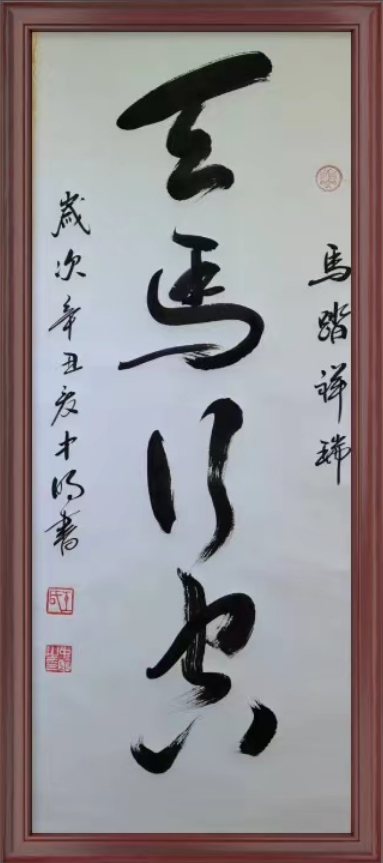 馬踏祥瑞
天馬行空
歲次辛丑夏才明書